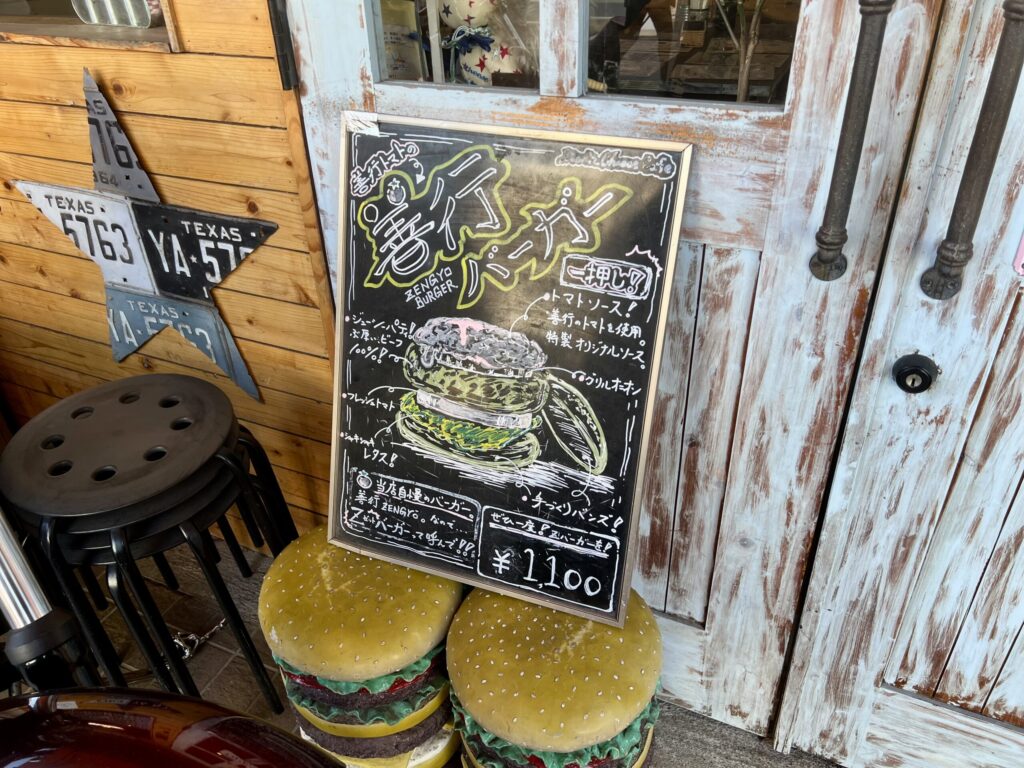 善行トマトの
善行
バーガー
ZENGYO
BURGER
一押し!
トマトソース!
善行のトマトを使用
特製オリジナルソース。
ジューシーパティ!
ぶ厚いビーフ
100%!
グリルオニオン
フレッシュトマト
シャキシャキ
レタス!
手づくりバンズ!
当店自慢のバーガー
善行ZENGYO。なので...
Zバーガーって呼んで!!
ぜひ一度!Zバーガーを!
¥1,100
TEXAS
5763
TEXAS
YA·575
TEXAS
YA·5763
576
64